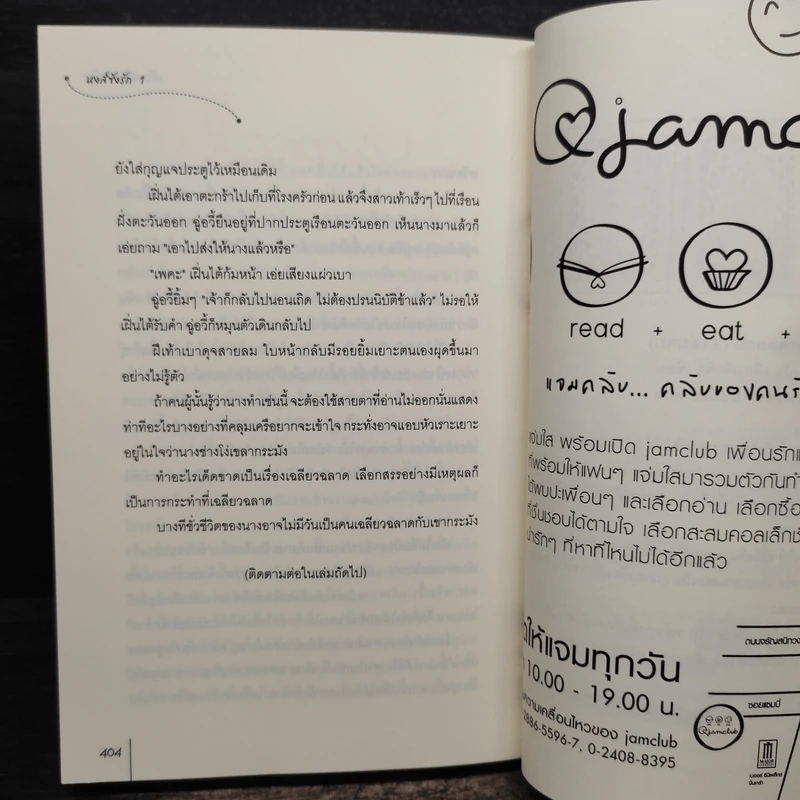 หงส์ขังรัก 1
ยังใส่กุญแจประตูไว้เหมือนเดิม
เฝิ่นไต้เอาตะกร้าไปเก็บที่โรงครัวก่อน แล้วจึงสาวเท้าเร็วๆ ไปที่เรือน
ฝั่งตะวันออก ฉู่อวี้ยืนอยู่ที่ปากประตูเรือนตะวันออก เห็นนางมาแล้วก็
เอ่ยถาม "เอาไปส่งให้นางแล้วหรือ"
"เพคะ" เฝิ่นไต้ก้มหน้า เอ่ยเสียงแผ่วเบา
ฉู่อวี้ยิ้มๆ "เจ้าก็กลับไปนอนเถิด ไม่ต้องปรนนิบัติข้าแล้ว" ไม่รอให้
เฝิ่นไต้รับคำ ฉู่อวี้ก็หมุนตัวเดินกลับไป
ฝีเท้าเบาดุจสายลม ใบหน้ากลับมีรอยยิ้มเยาะตนเองผุดขึ้นมา
อย่างไม่รู้ตัว
ถ้าคนผู้นั้นรู้ว่านางทำเช่นนี้ จะต้องใช้สายตาที่อ่านไม่ออกนั่นแสดง
ท่าทีอะไรบางอย่างที่คลุมเครือยากจะเข้าใจ กระทั่งอาจแอบหัวเราะเยาะ
อยู่ในใจว่านางช่างโง่เขลากระมัง
ทำอะไรเด็ดขาดเป็นเรื่องเฉลียวฉลาด เลือกสรรอย่างมีเหตุผลก็
เป็นการกระทำที่เฉลียวฉลาด
บางทีชั่วชีวิตของนางอาจไม่มีวันเป็นคนเฉลียวฉลาดกับเขากระมัง
(ติดตามต่อในเล่มถัดไป)
404
jamc
read + eat +
แจมคลับ... คลับของคนรั
แจ่มใส พร้อมเปิด jamclub เพื่อนรักแ
ที่พร้อมให้แฟนๆ แจ่มใสมารวมตัวกันทำ
ได้พบปะเพื่อนๆ และเลือกอ่าน เลือกซื้อ
ที่ชื่นชอบได้ตามใจ เลือกสะสมคอลเล็กชั
น่ารักๆ ที่หาที่ไหนไม่ได้อีกแล้ว
ให้แจมทุกวัน
10.00 - 19.00 น.
ความเคลื่อนไหวของ jamclub
-2886-5596-7, 0-2408-8395
ถนนจรัญสนิทวง
ซอยแซมมี่
jamclub
MAJOR
เมเจอร์ ซีนีเพล็กซ์
ปิ่นเกล้า